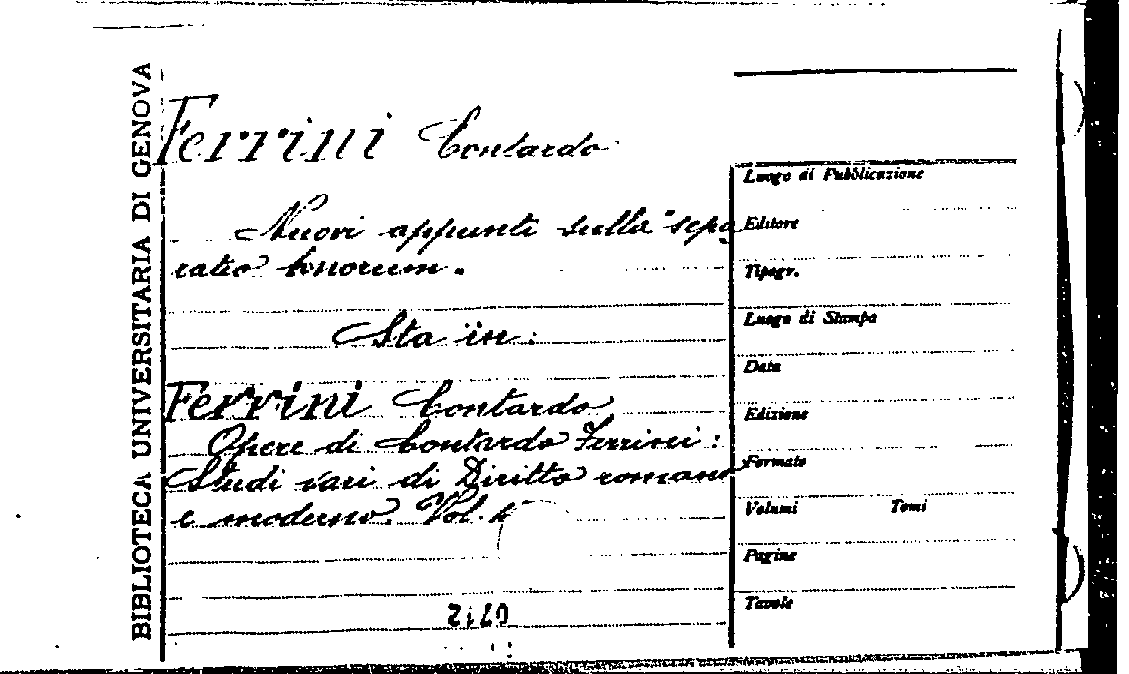 BIBLIOTECA UNIVERSITARIA DI GENOVA
Ferrini Contardo
Nuovi appunti sulla "sepa
ratio bonorum.
Sta in:
Ferrini Contardo
Opere di Contardo Ferrini:
Studi vari di Diritto romano
e moderno. Vol.
Luogo di Pubblicazione
Editore
Tipogr.
Luogo di Stampa
Data
Edizione
Formato
Volumi Tomi
Pagine
Tavole